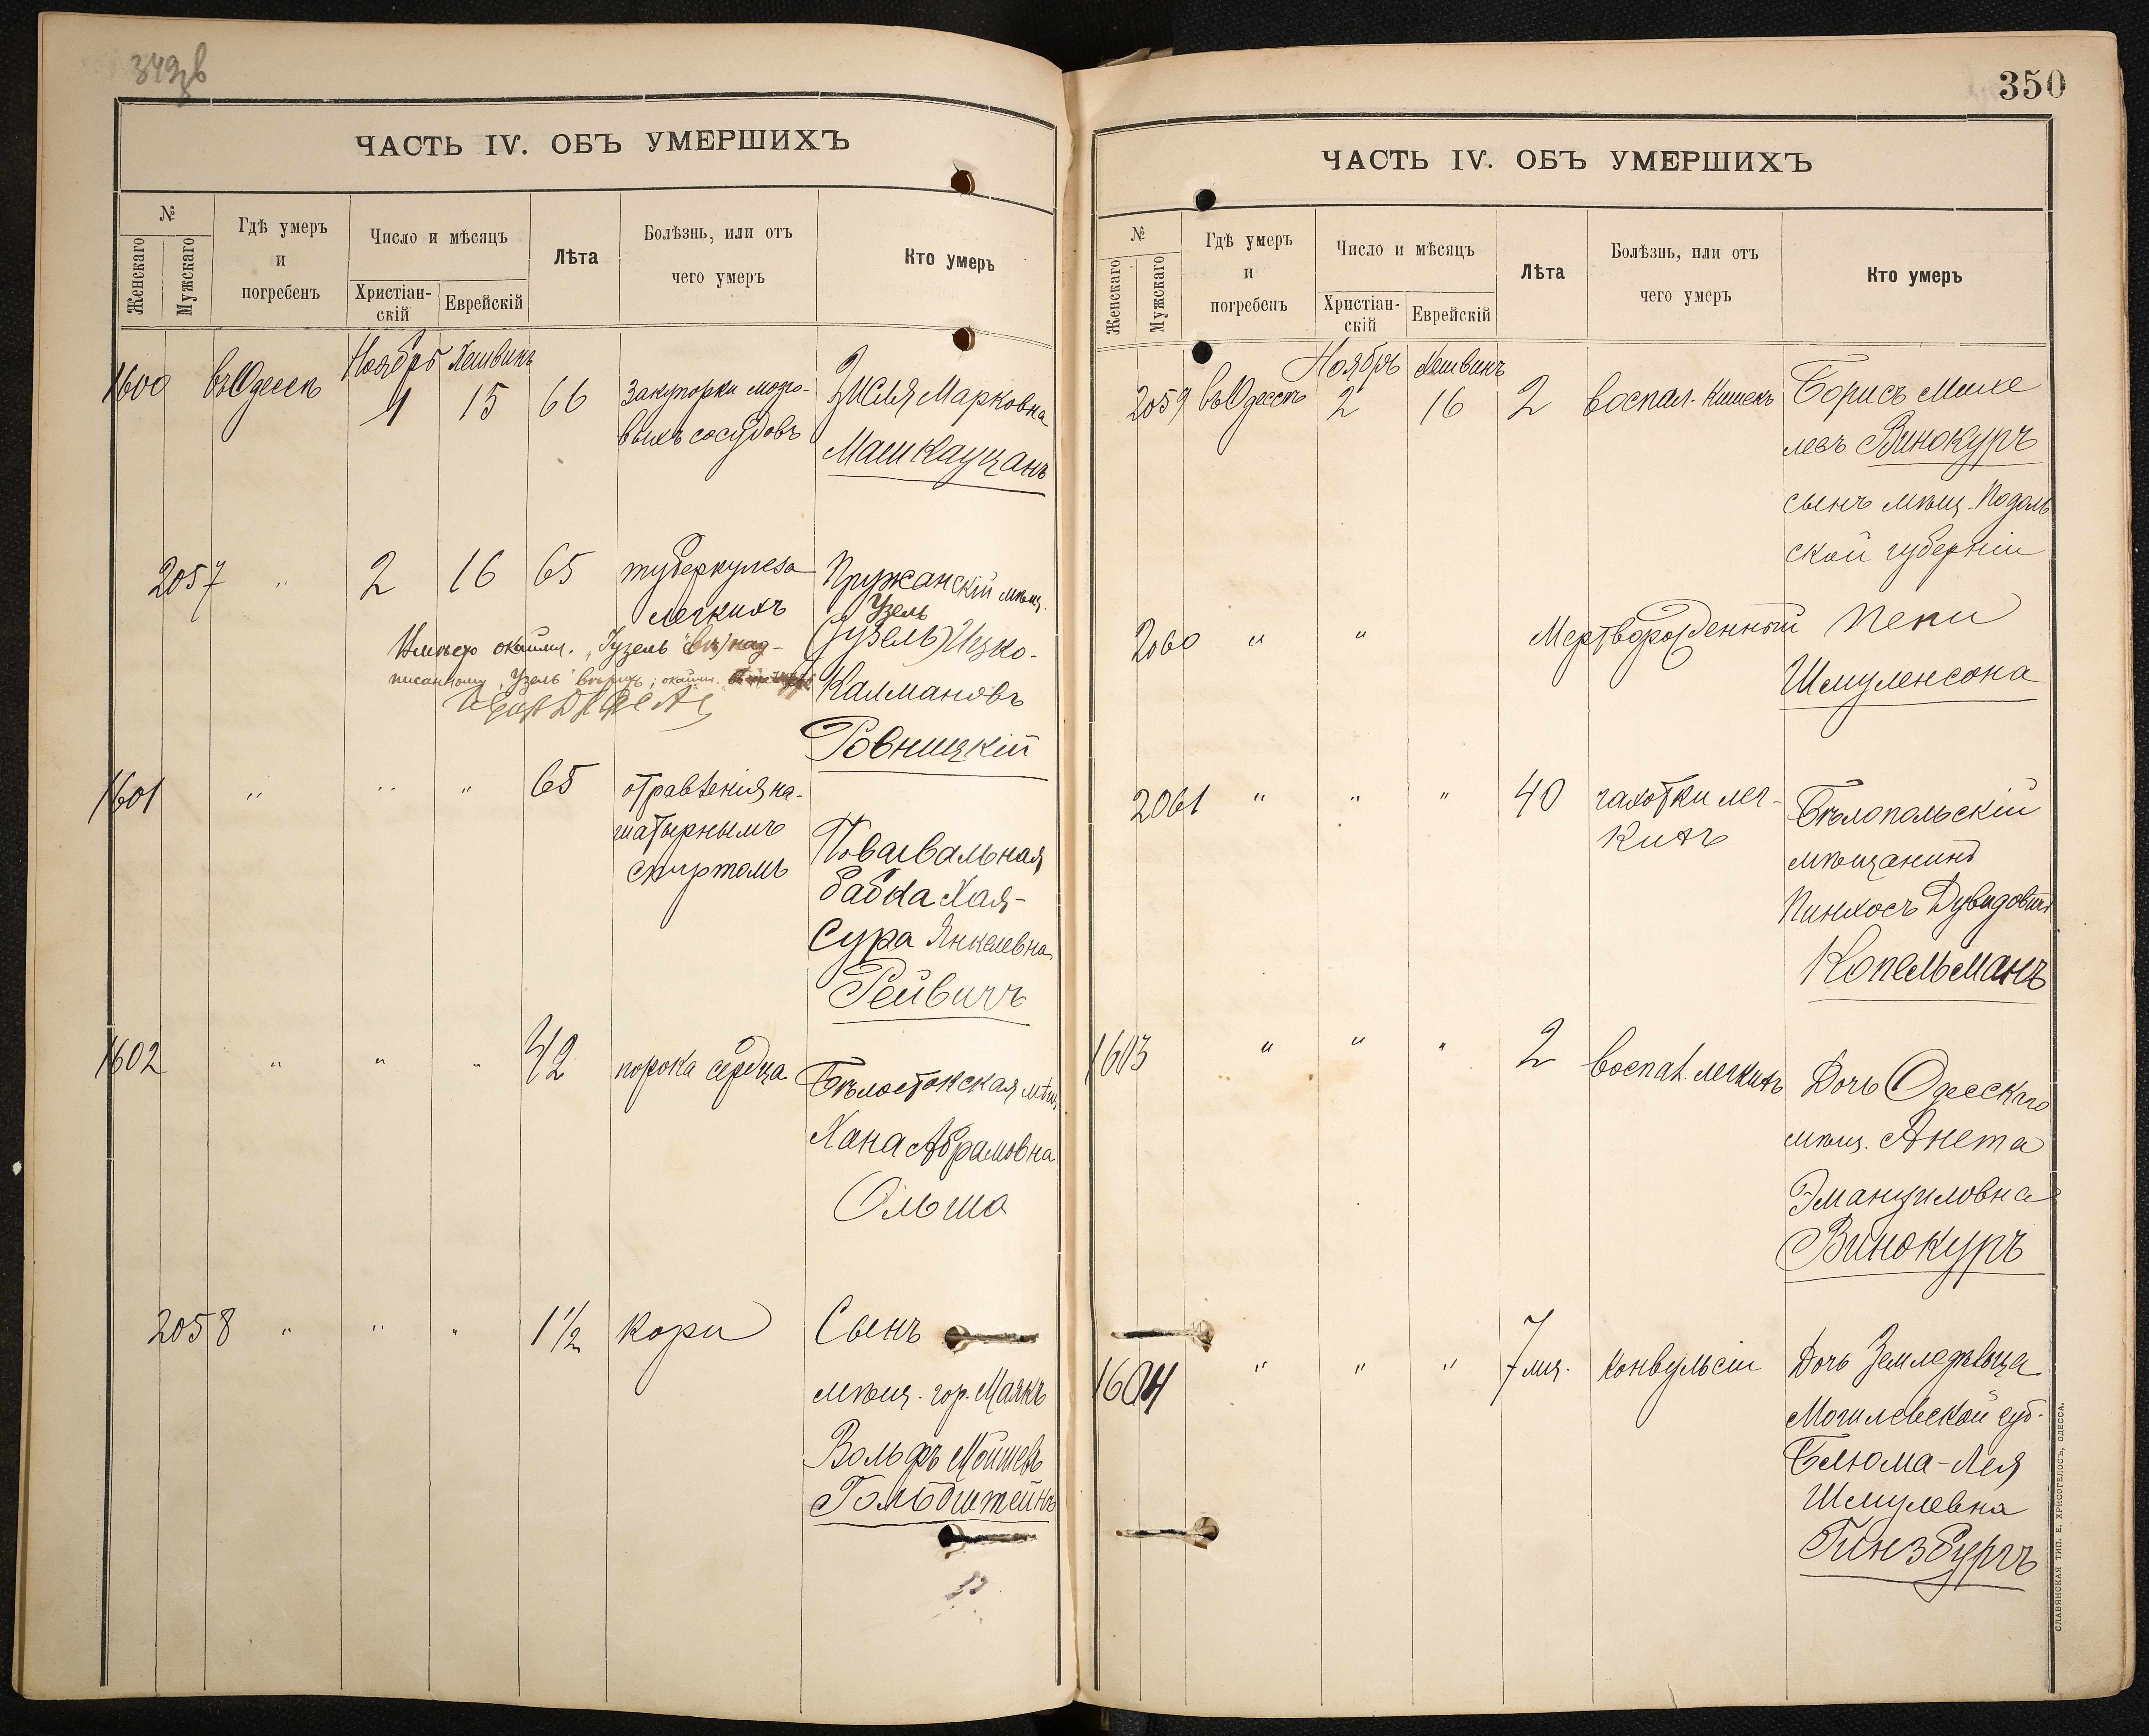 ЧАСТЬ IV. ОБЪ УМЕРШИХЪ
№
Женскаго
Мужскаго
Гдѣ умеръ
и
погребенъ
Число и мѣсяцъ
Христіан-
скій
Еврейскій
Лѣта
Болѣзнь, или отъ
чего умеръ
Кто умеръ
Ноябрь Хешвинъ
1600 въ Одессѣ 1 15 66 закупорки мозго-
выхъ сосудовъ
Марковна
Машкауцанъ
2057 " 2 16 65 туберкулеза
легкихъ
Пружанскій мѣщ.
Узель
(Гузель) Ицко-
Калмановъ
Ровницкій
окаймл. "Гузель" над-
писанному "Узель" вѣрить; окайм.
1601 " " " 65 отравленія на-
шатырнымъ
спиртомъ
Повивальная
бабка Хая-
Сура Янкелевна
Рейвичъ
1602 " " " 42 порока сердца
Бѣлостокская мѣщ.
Хана Абрамовна
Ольша
2058 " " " 1 1/2 кори
Сынъ
мѣщ. гор. Маякъ
Вольфъ Мойшевъ
Гольдштейнъ
350
ЧАСТЬ IV. ОБЪ УМЕРШИХЪ
№
Женскаго
Мужскаго
Гдѣ умеръ
и
погребенъ
Число и мѣсяцъ
Христіан-
скій
Еврейскій
Лѣта
Болѣзнь, или отъ
чего умеръ
Кто умеръ
Ноябрь Хешвинъ
2059 въ Одессѣ 2 16 2 воспал. кишекъ
Борисъ Михе
левъ Винокуръ
сынъ мѣщ. Подоль
ской губерніи
2060 " " Мертворожденный
Пени
Шмуленсона
2061 " " " 40 чахотки лег-
кихъ
Бѣлопольскій
мѣщанинъ
Пинхосъ Дувидовичъ
Копельманъ
1603 " " " 2 воспал. легкихъ
Дочь Одесскаго
мѣщ. Анета
Эмануиловна
Винокуръ
1604 " " " 7 мц. конвульсіи
Дочь Земледѣльца
Могилевской губ.
Блюма-Лея
Шмулевна
Гинзбургъ
СЛАВЯНСКАЯ ТИП. Е. ХРИСОГЕЛОСЪ, ОДЕССА.